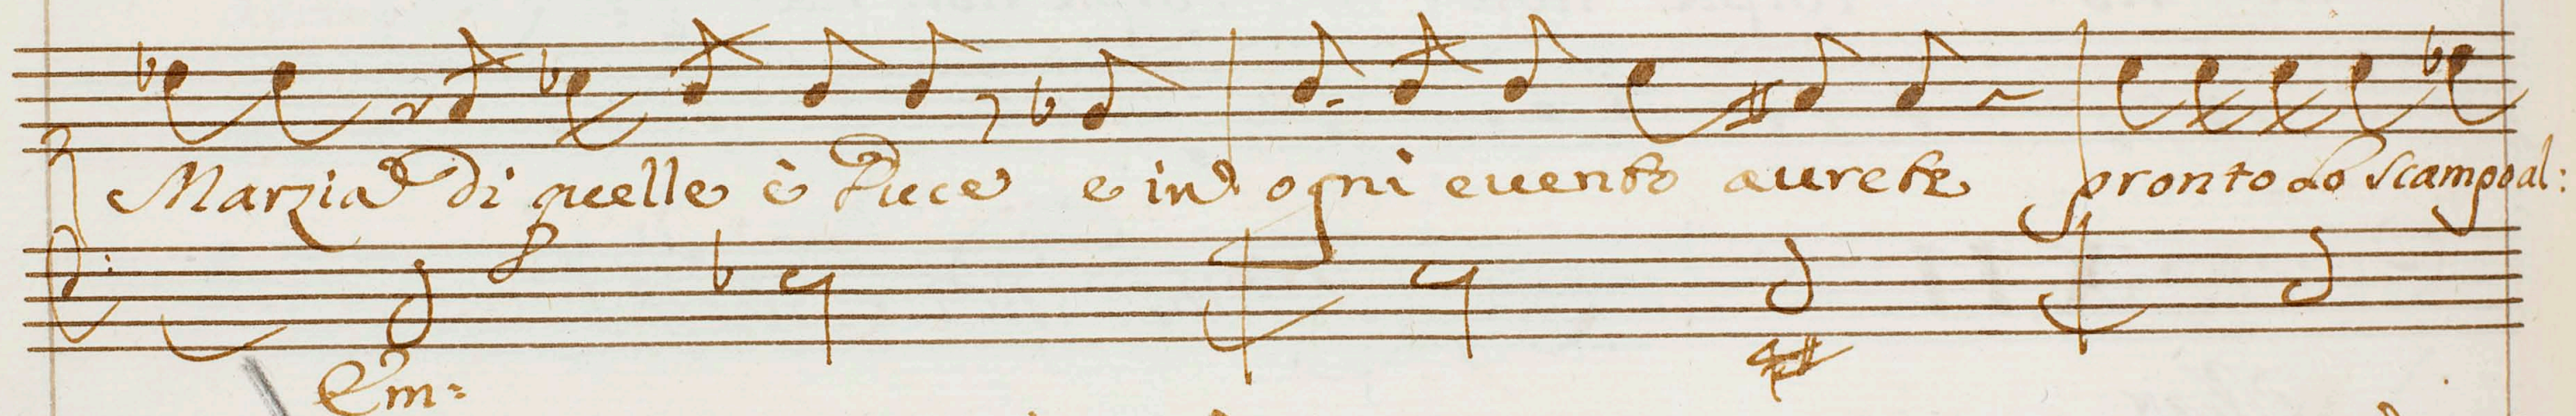 Marzia di quelle è Duce e in ogni evento avrete pronto lo scampo al:
4#
Em: